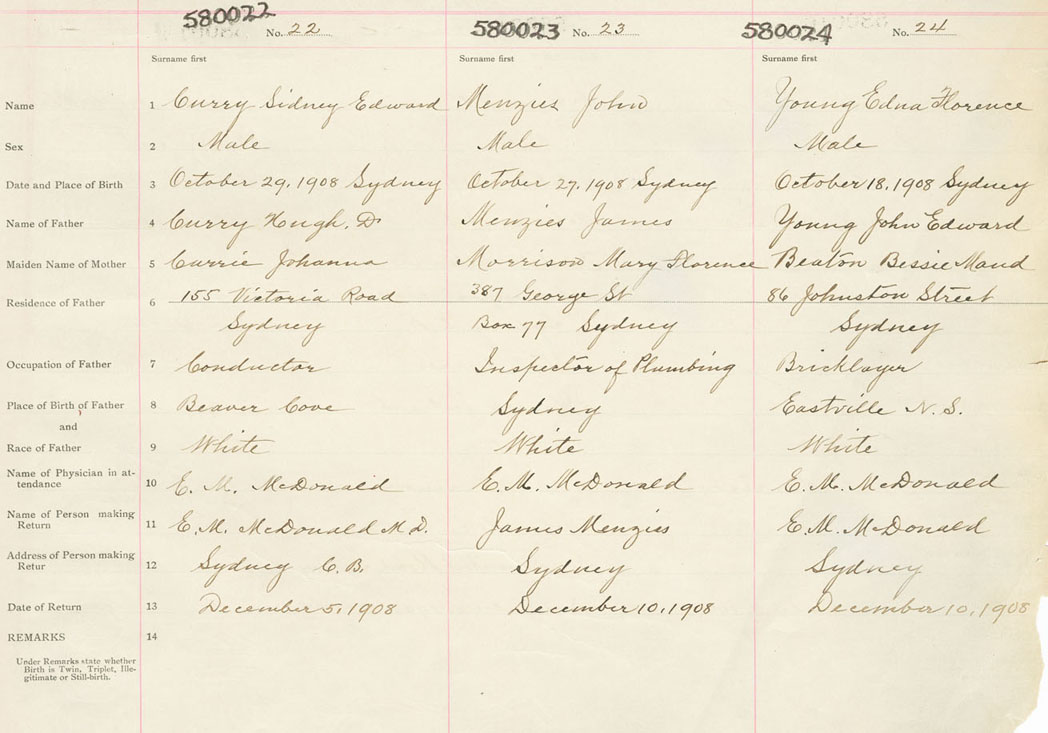 580022 No. 22 580023 No. 23 580024 No. 24
Surname first Surname first Surname first
Name 1 Curry Sidney Edward Menzies John Young Edna Florence
Sex 2 Male Male Male
Date and Place of Birth 3 October 29, 1908 Sydney October 27, 1908 Sydney October 18, 1908 Sydney
Name of Father 4 Curry Hough. D. Menzies James Young John Edward
Maiden Name of Mother 5 Currie Johanna Morrison Mary Florence Beaton Bessie Maud
Residence of Father 6 155 Victoria Road 387 George St 86 Johnston Street
Sydney Box 77 Sydney Sydney
Occupation of Father 7 Conductor Inspector of Plumbing Bricklayer
Place of Birth of Father 8 Beaver Cove Sydney Eastville N.S.
and
Race of Father 9 White White White
Name of Physician in at-
tendance 10 E. M. McDonald E. M. McDonald E. M. McDonald
Name of Person making
Return 11 E. M. McDonald M.D. James Menzies E. M. McDonald
Address of Person making
Retur 12 Sydney C.B. Sydney Sydney
Date of Return 13 December 5, 1908 December 10, 1908 December 10, 1908
REMARKS 14
Under Remarks state whether
Birth is Twin, Triplet, Ille-
gitimate or Still-birth.